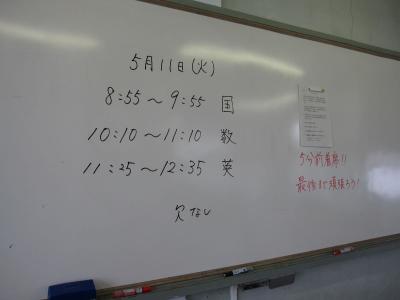 5月11日(火)
8:55～9:55 国
10:10～11:10 数
11:25～12:35 英
欠なし
5分前着席!!
最後まで頑張ろう!